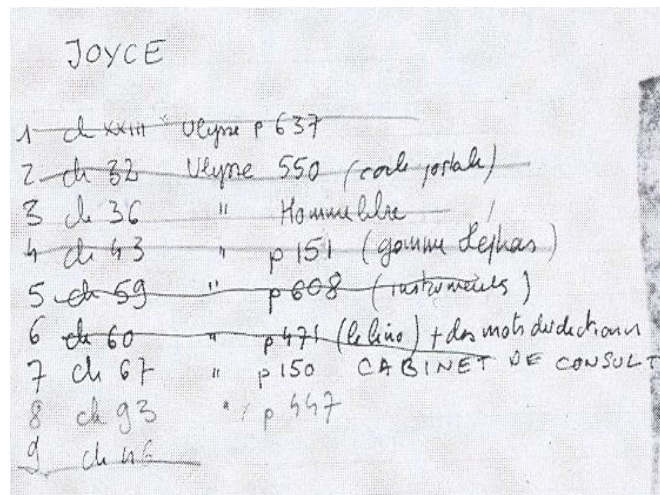 JOYCE
1 ch XXIII " Ulysse p 637
2 ch 32 Ulysse 550 (carte postale)
3 ch 36 " Homme libre
4 ch 43 " p 151 (gomme
5 ch 59 " p 608 (instruments)
6 ch 60 " p 471 (le lino) + des mots du dictionn
7 ch 67 " p 150 CABINET DE CONSULT
8 ch 93 " p 447
9 ch 46